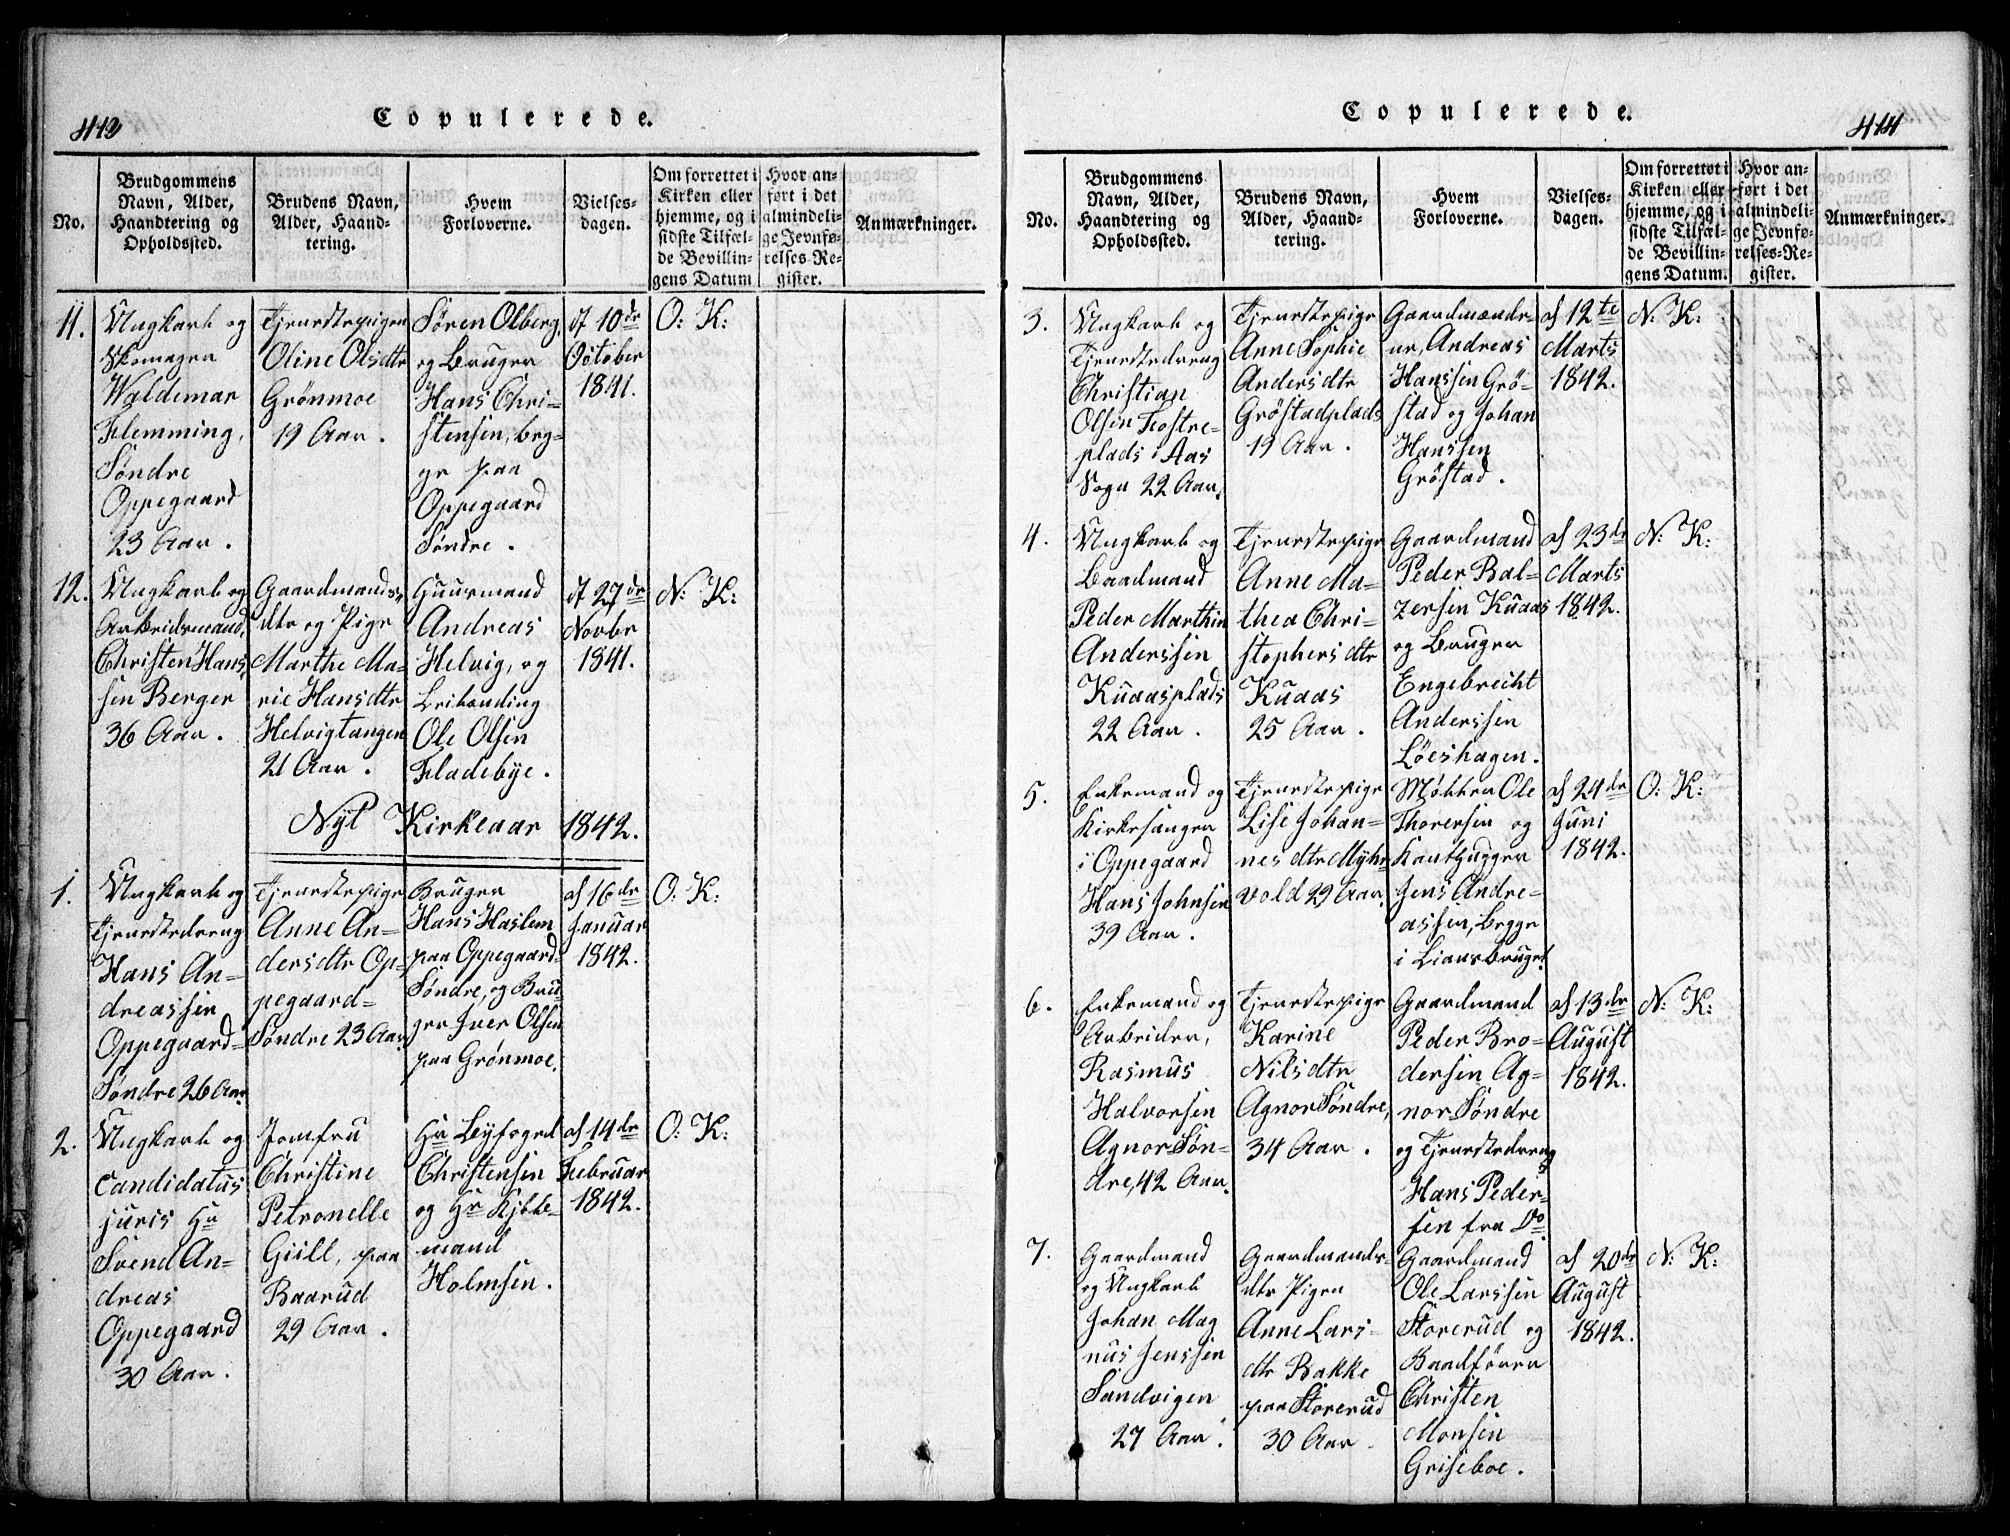 413
Copulerede.
No.
Brudgommens
Navn, Alder,
Haandtering og
Opholdssted.
Brudens Navn,
Alder, Haand-
tering.
Hvem
Forloverne.
Vielses-
dagen.
Om forrettet i
Kirken eller
hjemme, og i
sidste Tilfæl-
de Bevillin-
gens Datum
Hvor an-
ført i det
almindeli-
ge Jevnfø-
relses-Re-
gister.
Anmærkninger.
11.
Ungkarl og
Skomager
Waldemar
Flemming,
Søndre
Oppegaard
23 Aar.
Tjenestepigen
Oline Olsdtr
Grönmoe
19 Aar.
Søren Olberg
og Bruger
Hans Chri=
stensen, beg=
ge paa
Oppegaard
Søndre.
d 10de
October
1841.
O: K:
12.
Ungkarl og
Arbeidsmand,
Christen Hans
sen Berger
36 Aar.
Gaardmands
dtr og Pige
Marthe Ma=
rie Hansdtr
Helvigtangen
21 Aar.
Huusmand
Andreas
Helvig, og
Leilænding
Ole Olsen
Fladebye.
d 27de
Novbr
1841.
N: K:
Nyt Kirkeaar 1842.
1.
Ungkarl og
Tjenestedreng
Hans An=
dreassen
Oppegaard=
Søndre 26 Aar.
Tjenestepige
Anne An=
dersdtr Op=
pegaard=
Søndre 23 Aar.
Bruger
Hans Haslem
paa Oppegaard=
Søndre, og Bru=
ger Iver Olsen
paa Grønmoe.
d 16de
Januar
1842.
O: K:
2.
Ungkarl og
Candidatus
juris Hr
Svend An=
dreas
Oppegaard
30 Aar.
Jomfru
Christine
Petronelle
Giill, paa
Baarud
29 Aar.
Hr Byfoged
Christensen
og Hr Kjøbe=
mand
Holmsen.
d 14de
Februar
1842.
O: K:
Copulerede.
414
No.
Brudgommens
Navn, Alder,
Haandtering og
Opholdssted.
Brudens Navn,
Alder, Haand-
tering.
Hvem
Forloverne.
Vielses-
dagen.
Om forrettet i
Kirken eller
hjemme, og i
sidste Tilfæl-
de Bevillin-
gens Datum.
Hvor an-
ført i det
almindeli-
ge Jevnfø-
relses-Re-
gister.
Anmærkninger.
3.
Ungkarl og
Tjenestedreng
Christian
Olsen Fostre=
plads i Aas
Sogn 22 Aar.
Tjenestepige
Anne Sophie
Andersdtr
Grøstadplads
19 Aar.
Gaardmænde=
ne, Andreas
Hanssen Grö=
stad og Johan
Hanssen
Grøstad.
d 12te
Marts
1842.
N: K:
4.
Ungkarl og
Baadmand
Peder Marthin
Anderssen
Kuaasplads
22 Aar.
Tjenestepige
Anne Ma=
thea Chri=
stophersdtr
Kuaas
25 Aar.
Gaardmand
Peder Bal=
zersen Kuaas
og Bruger
Engebrecht
Anderssen
Löeshagen.
d 23de
Marts
1842.
N: K:
5.
Enkemand og
Kirkesanger
i Oppegaard
Hans Johnsen
39 Aar.
Tjenestepige
Lise Johan=
nesdtr Myhr
vold 29 Aar.
Møller Ole
Thoresen og
Kanthugger
Jens Andre=
assen, begge
i Liansbruget.
d 24de
Juni
1842.
O: K:
6.
Enkemand og
Arbeider,
Rasmus
Halvorsen
Agnor Søn=
dre, 42 Aar.
Tjenestepige
Karine
Nilsdtr
Agnor Søndre,
34 Aar.
Gaardmand
Peder Bro=
dersen Ag=
nor Søndre
og Tjenestedreng
Hans Peder=
sen fra Do
d 13de
August
1842.
N: K:
7.
Gaardmand
og Ungkarl
Johan Mag
nus Jenssen
Sandvigen
27 Aar.
Gaardmands=
dtr Pigen
Anne Lars=
dtr Bakke
paa Storerud
30 Aar
Gaardmand
Ole Larssen
Storerud og
Baadfører
Christen
Monsen
Griseboe.
d 20de
August
1842.
N: K: